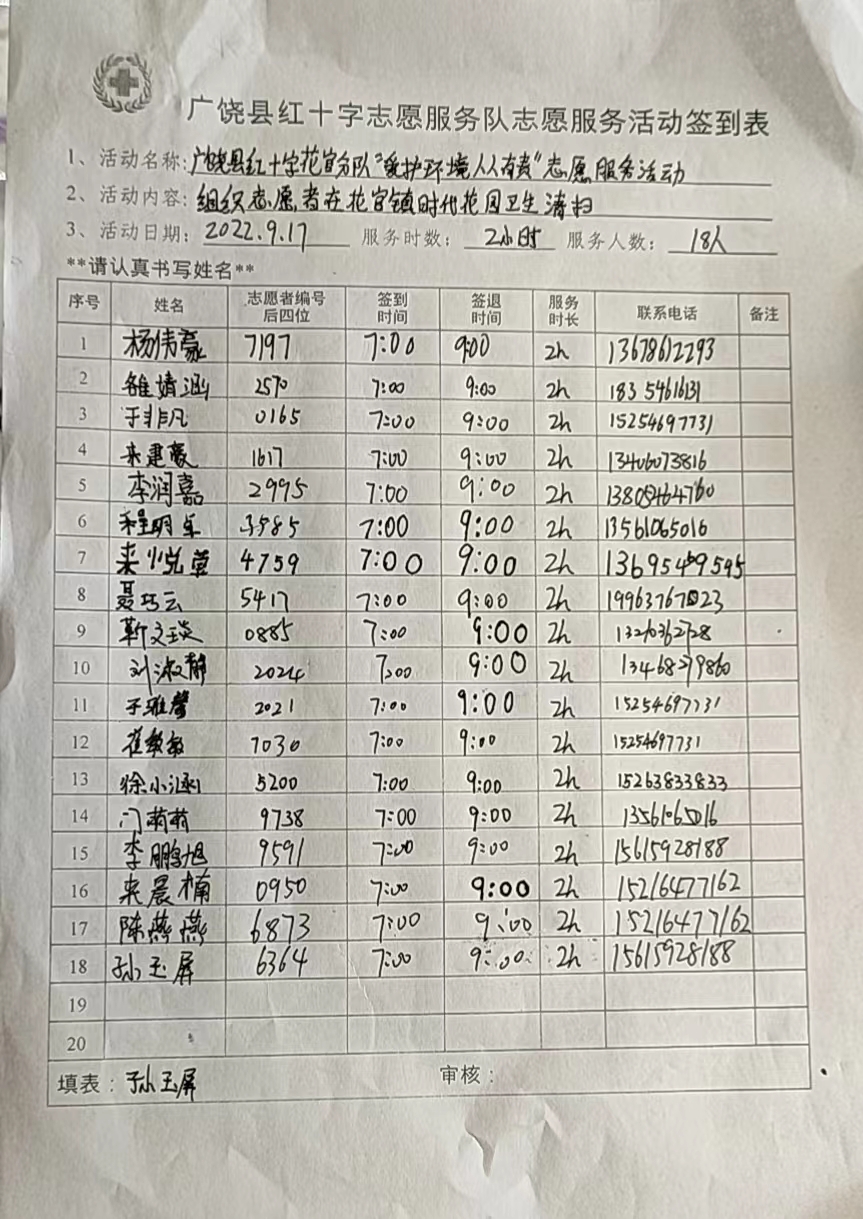 广饶县红十字志愿服务队志愿服务活动签到表
1、活动名称:广饶县红十字花官分队"爱护环境人人有责"志愿服务活动
2、活动内容:组织志愿者在花官镇时代花园卫生清扫
3、活动日期:2022.9.17 服务时数:2小时 服务人数:18人
**请认真书写姓名**
序号 姓名 志愿者编号后四位 签到时间 签退时间 服务时长 联系电话 备注
1 杨伟豪 7197 7:00 9:00 2h 13678612293
2 雒婧涵 2570 7:00 9:00 2h 18354616131
3 于非凡 0165 7:00 9:00 2h 15254697731
4 来建豪 1617 7:00 9:00 2h 13406073816
5 李润嘉 2995 7:00 9:00 2h 13805464760
6 程明卓 3585 7:00 9:00 2h 13561065016
7 来悦萱 4759 7:00 9:00 2h 13695469595
8 聂巧云 5417 7:00 9:00 2h
9 靳文琰 0885 7:00 9:00 2h
10 刘淑静 2024 7:00 9:00 2h 13468279860
11 于雅馨 2021 7:00 9:00 2h 15254697731
12 崔敏敏 7030 7:00 9:00 2h 15254697731
13 徐小涵 5200 7:00 9:00 2h 15263833833
14 门萌萌 9738 7:00 9:00 2h 13561065016
15 李鹏旭 9591 7:00 9:00 2h 15615928188
16 来晨楠 0950 7:00 9:00 2h 15216477162
17 陈燕燕 6873 7:00 9:00 2h 15216477162
18 孙玉屏 6364 7:00 9:00 2h 15615928188
19
20
填表:孙玉屏 审核: